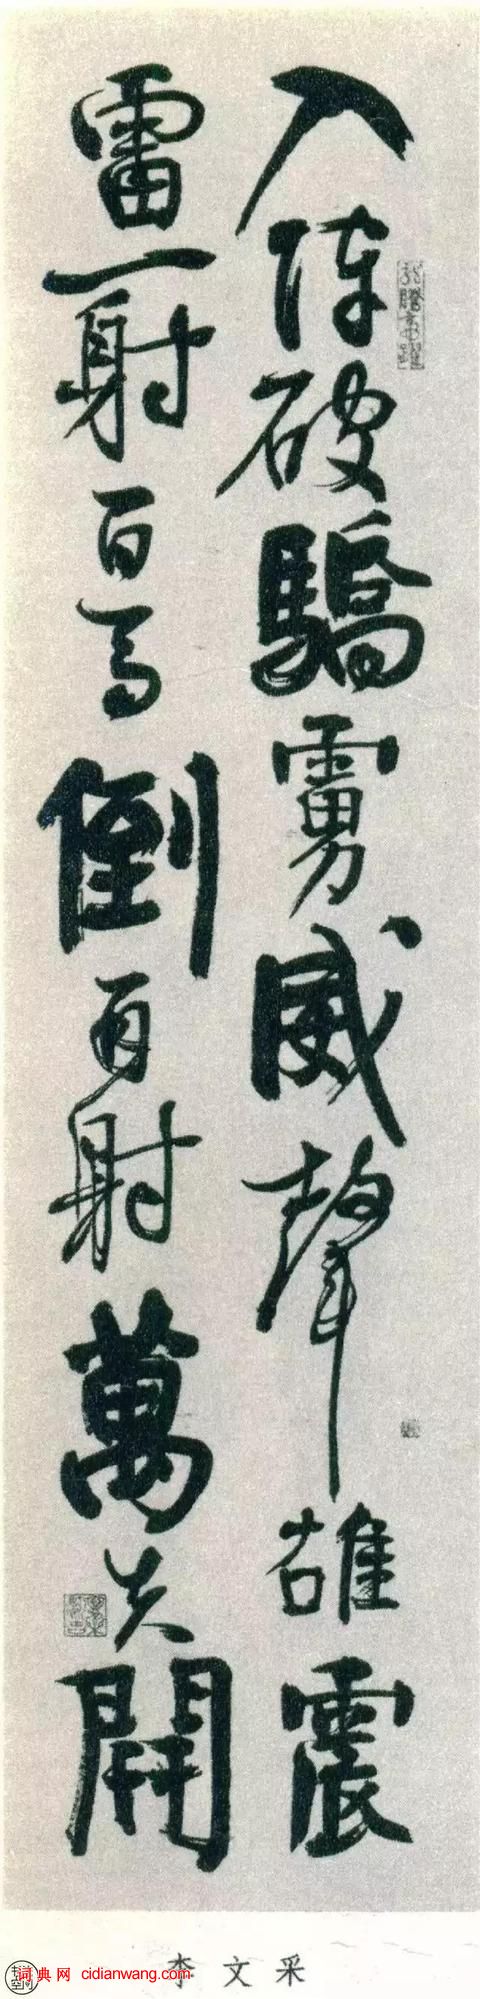 入陣破驕虜威聲雄震
雷一射百馬倒再射萬夫開
李文采
词典网 cidianwang.com